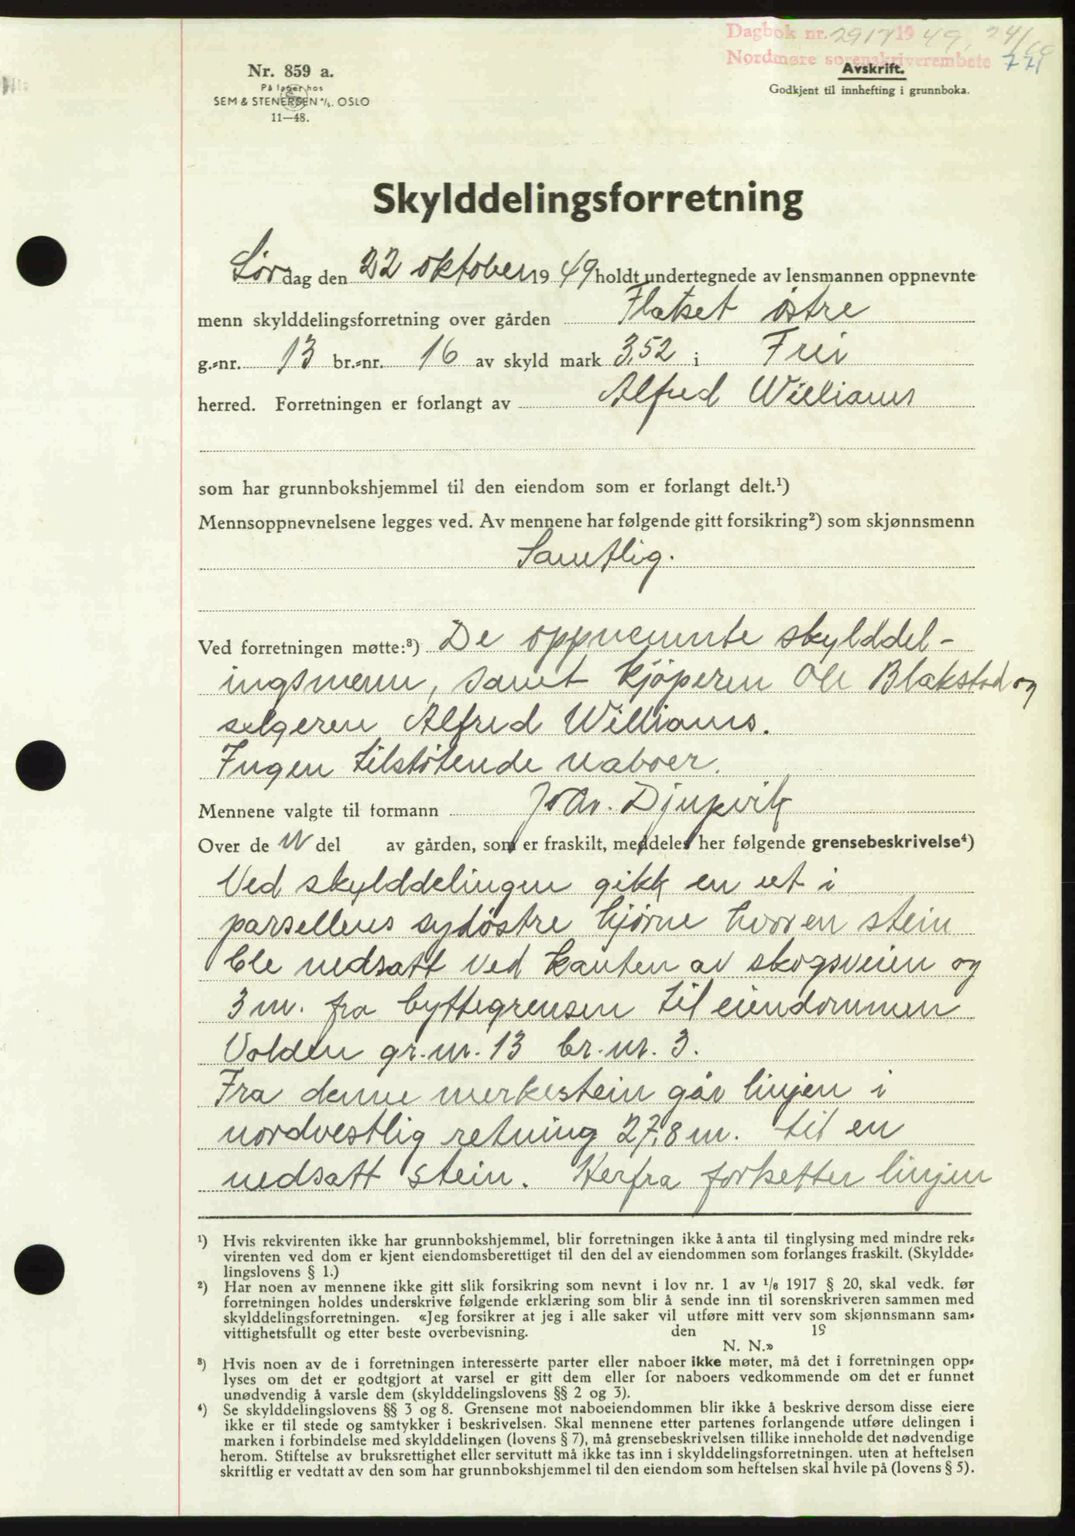 Dagbok nr. 2917 1949, 24/10
Nordmøre sorenskriverembete 771
Nr. 859 a.
På lager hos
SEM & STENERSEN A/S. OSLO
11—48.
Avskrift.
Godkjent til innhefting i grunnboka.
Skylddelingsforretning
Lørdag den 22 oktober 1949 holdt undertegnede av lensmannen oppnevnte
menn skylddelingsforretning over gården Flatset østre
g.-nr. 13 br.-nr. 16 av skyld mark 3,52 i Frei
herred. Forretningen er forlangt av Alfred Williams
som har grunnbokshjemmel til den eiendom som er forlangt delt.¹)
Mennsoppnevnelsene legges ved. Av mennene har følgende gitt forsikring²) som skjønnsmenn
Samtlig.
Ved forretningen møtte:³) De oppnevnte skylddel-
ingsmenn, samt kjøperen Ole Blakstad og
selgeren Alfred Williams.
Ingen tilstøtende naboer.
Mennene valgte til formann Djupvik
Over de n del av gården, som er fraskilt, meddeles her følgende grensebeskrivelse⁴)
Ved skylddelingen gikk en ut i
parsellens sydøstre hjørne hvor en stein
ble nedsatt ved kanten av skogsveien og
3 m. fra byttegrensen til eiendommen
Volden gr. nr. 13 br. nr. 3.
Fra denne merkestein går linjen i
nordvestlig retning 27,8 m. til en
nedsatt stein. Herfra fortsetter linjen
¹) Hvis rekvirenten ikke har grunnbokshjemmel, blir forretningen ikke å anta til tinglysing med mindre rek-
virenten ved dom er kjent eiendomsberettiget til den del av eiendommen som forlanges fraskilt. (Skyldde-
lingslovens § 1.)
²) Har noen av mennene ikke gitt slik forsikring som nevnt i lov nr. 1 av 1/6 1917 § 20, skal vedk. før
forretningen holdes underskrive følgende erklæring som blir å sende inn til sorenskriveren sammen med
skylddelingsforretningen. «Jeg forsikrer at jeg i alle saker vil utføre mitt verv som skjønnsmann sam-
vittighetsfullt og etter beste overbevisning. den 19
N. N.»
³) Hvis noen av de i forretningen interesserte parter eller naboer ikke møter, må det i forretningen opp-
lyses om det er godtgjort at varsel er gitt dem eller for naboers vedkommende om det er funnet
unødvendig å varsle dem (skylddelingslovens §§ 2 og 3).
⁴) Se skylddelingslovens §§ 3 og 8. Grensene mot naboeiendommen blir ikke å beskrive dersom disse eiere
ikke er til stede og samtykker i beskrivelsen. Skal mennene etter partenes forlangende utføre delingen i
marken i forbindelse med skylddelingen (lovens § 7), må grensebeskrivelsen tillike inneholde det nødvendige
herom. Stiftelse av bruksrettighet eller servitutt må ikke tas inn i skylddelingsforretningen. uten at heftelsen
skriftlig er vedtatt av den som har grunnbokshjemmel til den eiendom som heftelsen skal hvile på (lovens § 5).